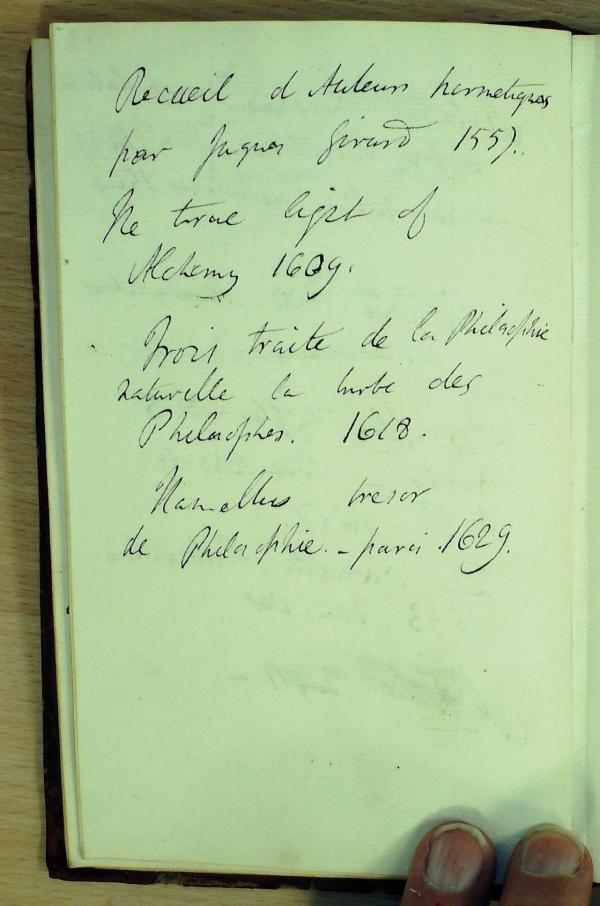 Recueil d Auteurs hermetiques
par Jaques Girard 1557.
The true light of
Alchemy 1609.
Trois traite de la Philosphie
naturelle la turbe des
Philosophes. 1618.
tresor
de Philosophie. - paris. 1629.